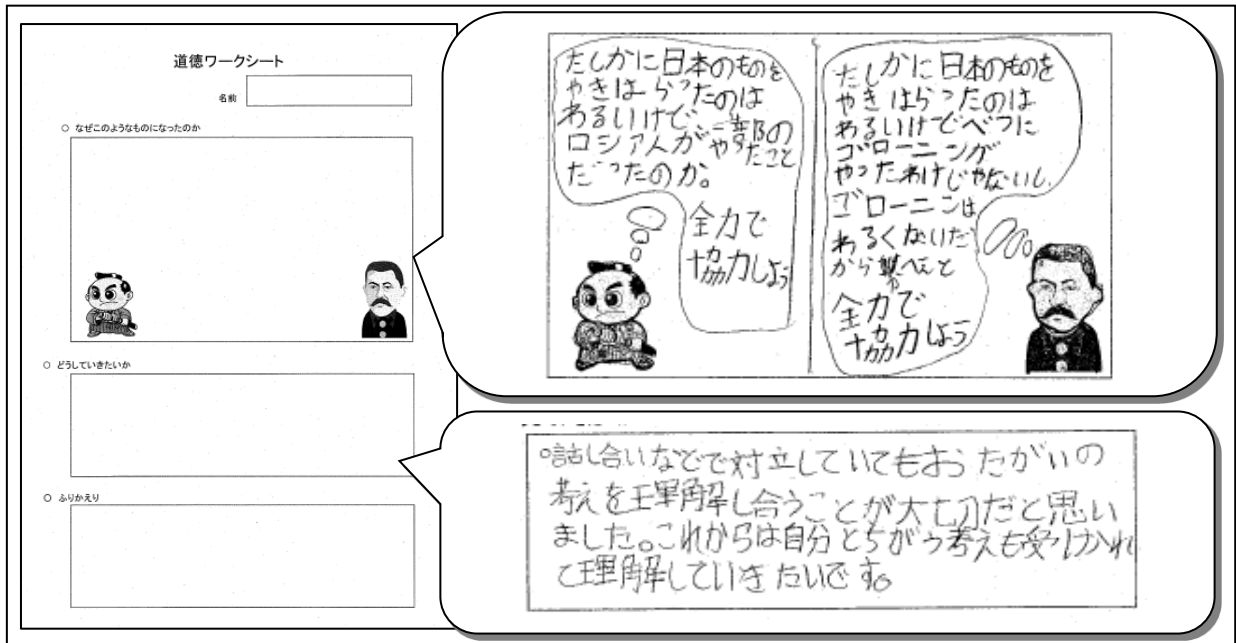 道徳ワークシート
名前
○ なぜこのようなものになったのか
○ どうしていきたいか
○ ふりかえり
たしかに日本のものを
やきはらったのは
わるいけで、一部の
ロシア人がやったこと
だったのか。
全力で
協力しよう
たしかに日本のものを
やきはらったのは
わるいけでべつに
ゴローニンが
やったわけじゃないし、
ゴローニンは
わるくないだ
から
全力で
協力しよう
○話し合いなどで対立していてもおたがいの
考えを理解し合うことが大切だと思い
ました。これからは自分とちがう考えも受けかれ
て理解していきたいです。